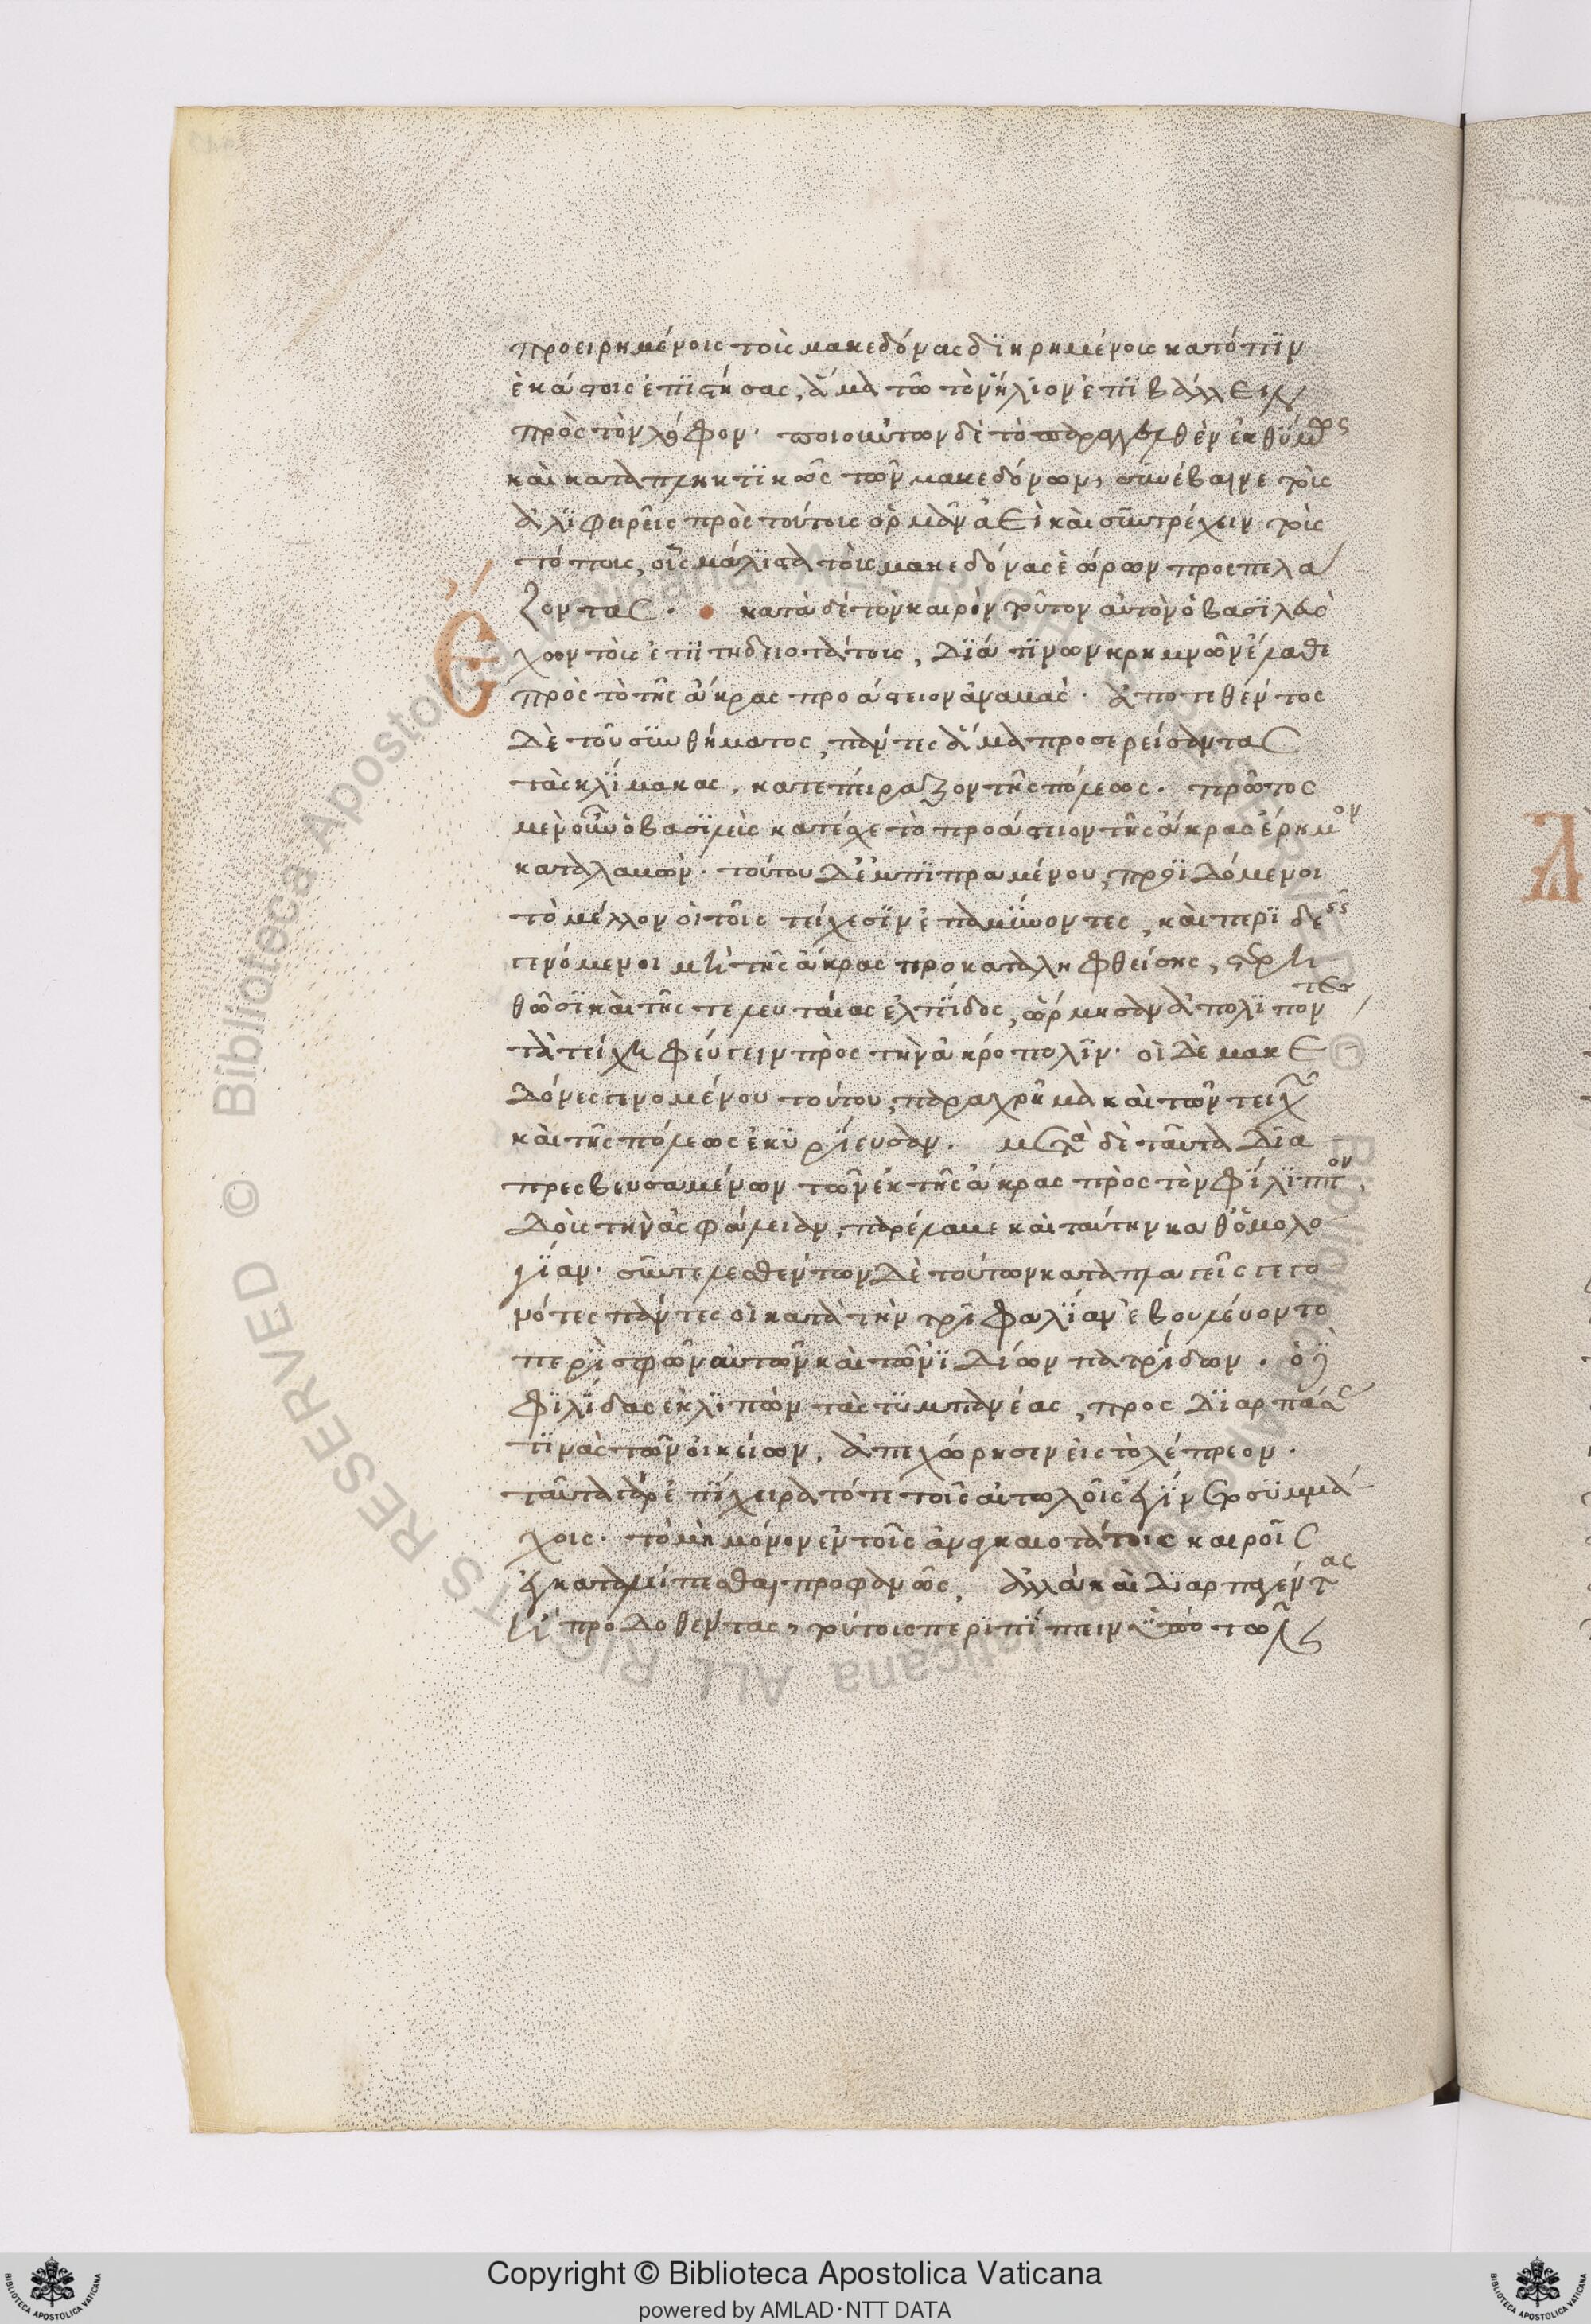 προειρημένοις τοὺς μακεδόνας διηρημένους κατόπιν
ἑκάστοις ἐπιστήσας, ἅμα τῶ τὸν ἥλιον ἐπιβάλλειν
πρὸς τὸν λόφον· ποιούντων δὲ τὸ παραγγελθὲν ἐκθύμως
καὶ καταπληκτικῶς τῶν μακεδόνων, συνέβαινε τοὺς
ἀλιφειρεῖς πρὸς τούτους ὁρμᾶν ἀεὶ καὶ συντρέχειν τοὺς
τόπους, οἷς μάλιστα τοὺς μακεδόνας ἑώρων προσπελά
ζοντας. κατὰ δὲ τὸν καιρὸν τοῦτον αὐτὸν ὁ βασιλεὺς ἔ
χων τοὺς ἐπιτηδειοτάτους, διά τινων κρημνῶν ἔλαθε
πρὸς τὸ τῆς ἄκρας προάστειον ἀναβὰς. ἀποτεθέντος
δὲ τοῦ συνθήματος, πάντες ἅμα προσερείσαντας
τὰς κλίμακας, κατεπείραζον τῆς πόλεως. πρῶτος
μὲν οὖν ὁ βασιλεὺς κατέσχε τὸ προάστειον τῆς ἄκρας ἔρημον
καταλαβών. τούτου δ' ἐμπιπραμένου, προϊδόμενοι
τὸ μέλλον οἱ τοῖς τείχεσιν ἐπαμύνοντες, καὶ περιδεεῖς
γενόμενοι μὴ τῆς ἄκρας προκαταληφθείσης, στερη
θῶσι καὶ τῆς τελευταίας ἐλπίδος, ὥρμησαν ἀπολιπόντες
τὰ τείχη φεύγειν πρὸς τὴν ἀκρόπολιν. οἱ δὲ μακε
δόνες γενομένου τούτου, παραχρῆμα καὶ τῶν τειχῶν
καὶ τῆς πόλεως ἐκυρίευσαν. μετὰ δὲ ταῦτα δια
πρεσβευσαμένων τῶν ἐκ τῆς ἄκρας πρὸς τὸν φίλιππον,
δοὺς τὴν ἀσφάλειαν, παρέλαβε καὶ ταύτην καθ' ὁμολο
γίαν. συντελεσθέντων δὲ τούτων καταπλαγεῖς γεγο
νότες πάντες οἱ κατὰ τὴν τριφαλίαν ἐβουλεύοντο
περὶ σφῶν αὐτῶν καὶ τῶν ἰδίων πατρίδων. ὁ δὲ
φιλίδας ἐκλιπὼν τὰς τυμπανέας, προς διαρπάσας
τινὰς τῶν οἰκείων, ἀπεχώρησεν εἰς τὸ λέπρεον.
ταῦτα γὰρ ἐπίχειρα τότε τοῖς αἰτωλοῖς ἐγίνετο συμμά
χοις. τὸ μὴ μόνον ἐν τοῖς ἀναγκαιοτάτοις καιροῖς
ἐγκαταλείπεσθαι προφανῶς, ἀλλὰ καὶ διαρπαγέντας
ἢ προδοθέντας, τούτοις περιπίπτειν ὑπὸ τῶν